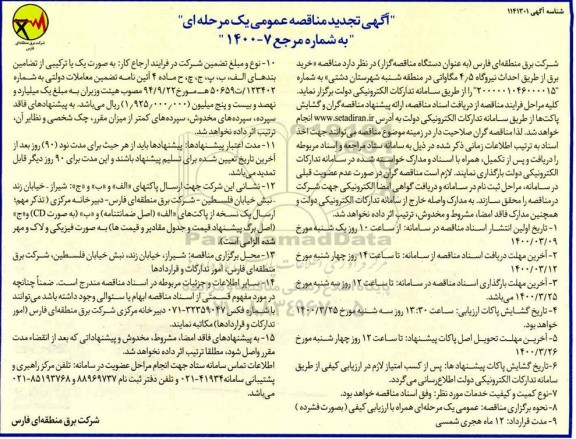 شناسه آگهی ۱۱۴۱۳۰۱
"آگهی تجدید مناقصه عمومی یک مرحله ای"
"به شماره مرجع ۷-۱۴۰۰"
شرکت برق منطقه‌ای فارس
شرکت برق منطقه‌ای فارس (به عنوان دستگاه مناقصه‌گزار) در نظر دارد مناقصه «خرید
برق از طریق احداث نیروگاه ۴٫۵ مگاواتی در منطقه شنبه شهرستان دشتی» به شماره
"۲۰۰۰۰۰۱۰۴۶۰۰۰۰۱۵" را از طریق سامانه تدارکات الکترونیکی دولت برگزار نماید.
کلیه مراحل فرایند مناقصه از دریافت اسناد مناقصه، ارائه پیشنهاد مناقصه‌گران و گشایش
پاکت‌ها از طریق سامانه تدارکات الکترونیکی دولت به آدرس www.setadiran.ir انجام
خواهد شد. لذا مناقصه گران صلاحیت دار در زمینه موضوع مناقصه می‌توانند جهت اخذ
اسناد به ترتیب اطلاعات زمانی ذکر شده در ذیل به سامانه ستاد مراجعه و اسناد مربوطه
را دریافت و پس از تکمیل، همراه با اسناد و مدارک خواسته شده در سامانه تدارکات
الکترونیکی دولت بارگذاری نمایند. لازم است مناقصه گران در صورت عدم عضویت قبلی
در سامانه، مراحل ثبت نام در سامانه و دریافت گواهی امضا الکترونیکی جهت شرکت
در مناقصه را محقق سازند. به مدارک واصله خارج از سامانه تدارکات الکترونیکی دولت و
همچنین مدارک فاقد امضا، مشروط و مخدوش، ترتیب اثر داده نخواهد شد.
۱- تاریخ اولین انتشار اسناد مناقصه در سامانه: از ساعت ۱۰ روز یک شنبه مورخ
۱۴۰۰/۰۳/۰۹
۲- آخرین مهلت دریافت اسناد مناقصه از سامانه: تا ساعت ۱۴ روز چهار شنبه مورخ
۱۴۰۰/۰۳/۱۲
۳- آخرین مهلت بارگذاری اسناد مناقصه در سامانه: تا ساعت ۱۲ روز سه شنبه مورخ
۱۴۰۰/۰۳/۲۵ می‌باشد.
۴- تاریخ گشایش پاکات ارزیابی: ساعت ۱۳:۳۰ روز سه شنبه مورخ ۱۴۰۰/۰۳/۲۵
خواهد بود.
۵- آخرین مهلت تحویل اصل پاکات پیشنهاد: تا ساعت ۱۲ روز چهار شنبه مورخ
۱۴۰۰/۰۳/۲۶
۶- تاریخ گشایش پاکات پیشنهاد ها: پس از کسب امتیاز لازم در ارزیابی کیفی از طریق
سامانه تدارکات الکترونیکی دولت اطلاع‌رسانی می‌گردد.
۷- نوع کمیت و کیفیت خدمات مورد نظر: وفق اسناد مناقصه خواهد بود.
۸- نحوه برگزاری مناقصه: عمومی یک مرحله‌ای همراه با ارزیابی کیفی (بصورت فشرده)
۹- مدت قرارداد: ۱۲ ماه هجری شمسی
۱۰- نوع و مبلغ تضمین شرکت در فرایند ارجاع کار: به صورت یک یا ترکیبی از تضامین
بندهای الف، ب، پ، ج، چ، ح ماده ۴ آئین نامه تضمین معاملات دولتی به شماره
۱۲۳۴۰۲/ت۵۰۶۵۹هـ مورخ ۹۴/۹/۲۲ مصوب هیئت وزیران به مبلغ یک میلیارد و
نهصد و بیست و پنج میلیون (۱,۹۲۵,۰۰۰,۰۰۰) ریال می‌باشد. به پیشنهادهای فاقد
سپرده، سپرده‌های مخدوش، سپرده‌های کمتر از میزان مقرر، چک شخصی و نظایر آن،
ترتیب اثر داده نخواهد شد.
۱۱- مدت اعتبار پیشنهادها: پیشنهادها باید از هر حیث برای مدت نود (۹۰) روز بعد از
آخرین تاریخ تعیین شده برای تسلیم پیشنهاد باشند و این مدت برای ۹۰ روز دیگر قابل
تمدید می‌باشد.
۱۲- نشانی این شرکت جهت ارسال پاکتهای «الف» و «ب» و «ج»: شیراز، خیابان زند
نبش خیابان فلسطین - شرکت برق منطقه‌ای فارس- دبیرخانه مرکزی (تذکر مهم:
ارسال یک نسخه از پاکت‌های «الف» (اصل ضمانتنامه) و «ب» (به صورت CD) و «ج»
(اصل برگ پیشنهاد قیمت و جدول مقادیر و قیمت ها) به صورت فیزیکی و لاک و مهر
شده الزامی است).
۱۳- محل برگزاری مناقصه: شیراز، خیابان زند، نبش خیابان فلسطین، شرکت برق
منطقه‌ای فارس، امور تدارکات و قراردادها
۱۴- سایر اطلاعات و جزئیات مربوطه در اسناد مناقصه مندرج است. ضمناً چنانچه
در مورد مفهوم قسمتی از اسناد مناقصه ابهام یا سئوالی وجود داشته باشد می‌توانند
با شماره فکس ۳۲۳۵۹۰۴۷-۰۷۱ دبیرخانه مرکزی شرکت برق منطقه‌ای فارس (امور
تدارکات و قراردادها) مکاتبه نمایند.
۱۵- به پیشنهادهای فاقد امضا، مشروط، مخدوش و پیشنهاداتی که بعد از انقضاء مدت
مقرر واصل شود، مطلقا ترتیب اثر داده نخواهد شد.
اطلاعات تماس سامانه ستاد جهت انجام مراحل عضویت در سامانه: تلفن مرکز راهبری و
پشتیبانی سامانه ۴۱۹۳۴-۰۲۱ و تلفن دفتر ثبت نام ۸۸۹۶۹۷۳۷ و ۸۵۱۹۳۷۶۸-۰۲۱
می‌باشد.
شرکت برق منطقه‌ای فارس